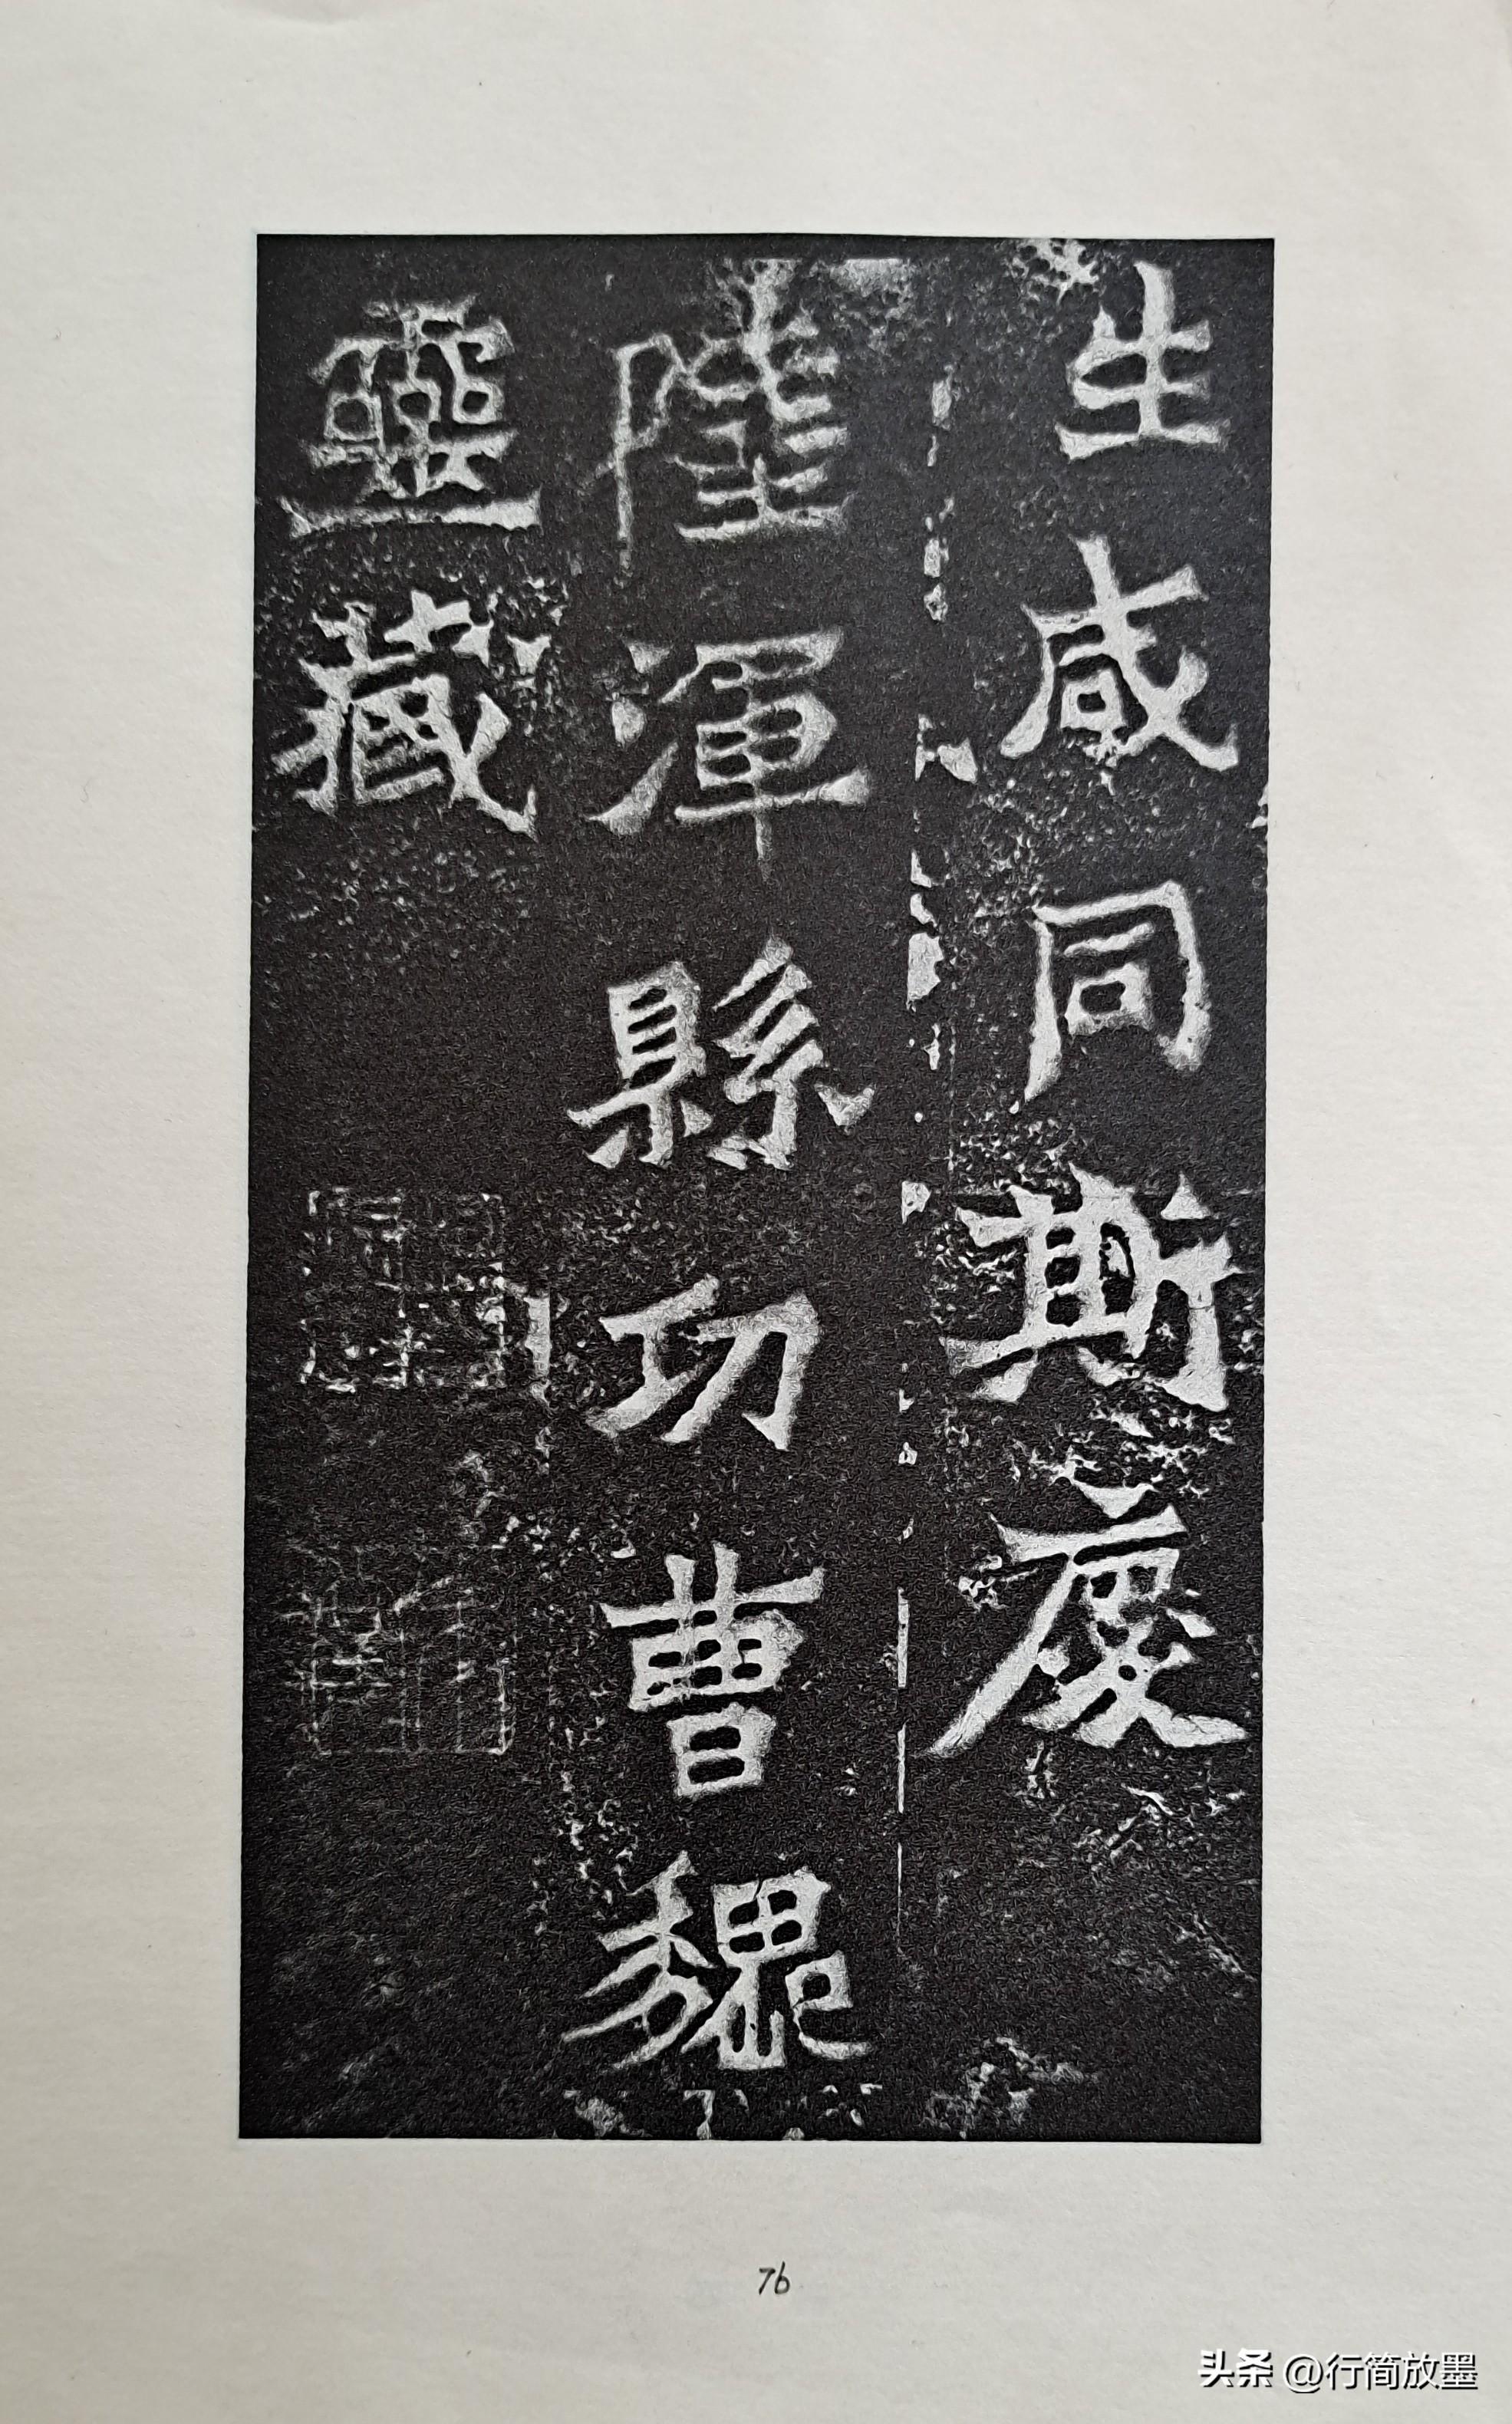 生咸同斯慶
陸渾縣功曹魏
靈藏
76
头条 @行简放墨